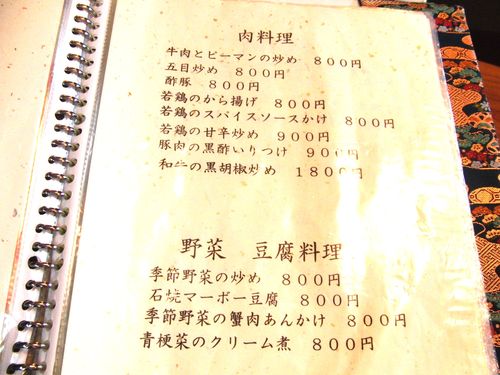 肉料理
牛肉とピーマンの炒め 800円
五目炒め 800円
酢豚 800円
若鶏のから揚げ 800円
若鶏のスパイスソースかけ 800円
若鶏の甘辛炒め 900円
豚肉の黒酢いりつけ 900円
和牛の黒胡椒炒め 1800円
野菜 豆腐料理
季節野菜の炒め 800円
石焼マーボー豆腐 800円
季節野菜の蟹肉あんかけ 800円
青梗菜のクリーム煮 800円